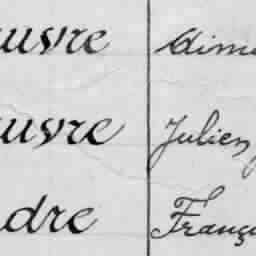 uvre Aimé
uvre Julien
dre Franç